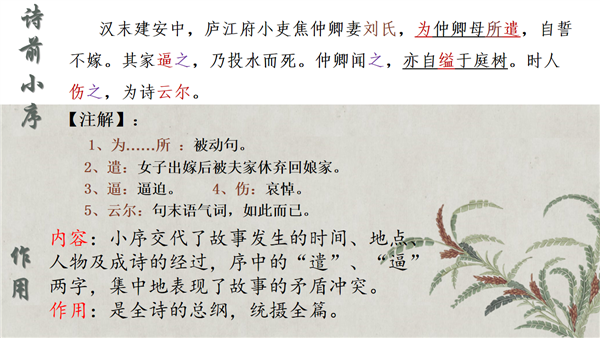 诗前小序
汉末建安中，庐江府小吏焦仲卿妻刘氏，为仲卿母所遣，自誓
不嫁。其家逼之，乃投水而死。仲卿闻之，亦自缢于庭树。时人
伤之，为诗云尔。
【注解】：
1、为……所 ：被动句。
2、遣：女子出嫁后被夫家休弃回娘家。
3、逼：逼迫。 4、伤：哀悼。
5、云尔：句末语气词，如此而已。
作用
内容：小序交代了故事发生的时间、地点、
人物及成诗的经过，序中的“遣”、“逼”
两字，集中地表现了故事的矛盾冲突。
作用：是全诗的总纲，统摄全篇。